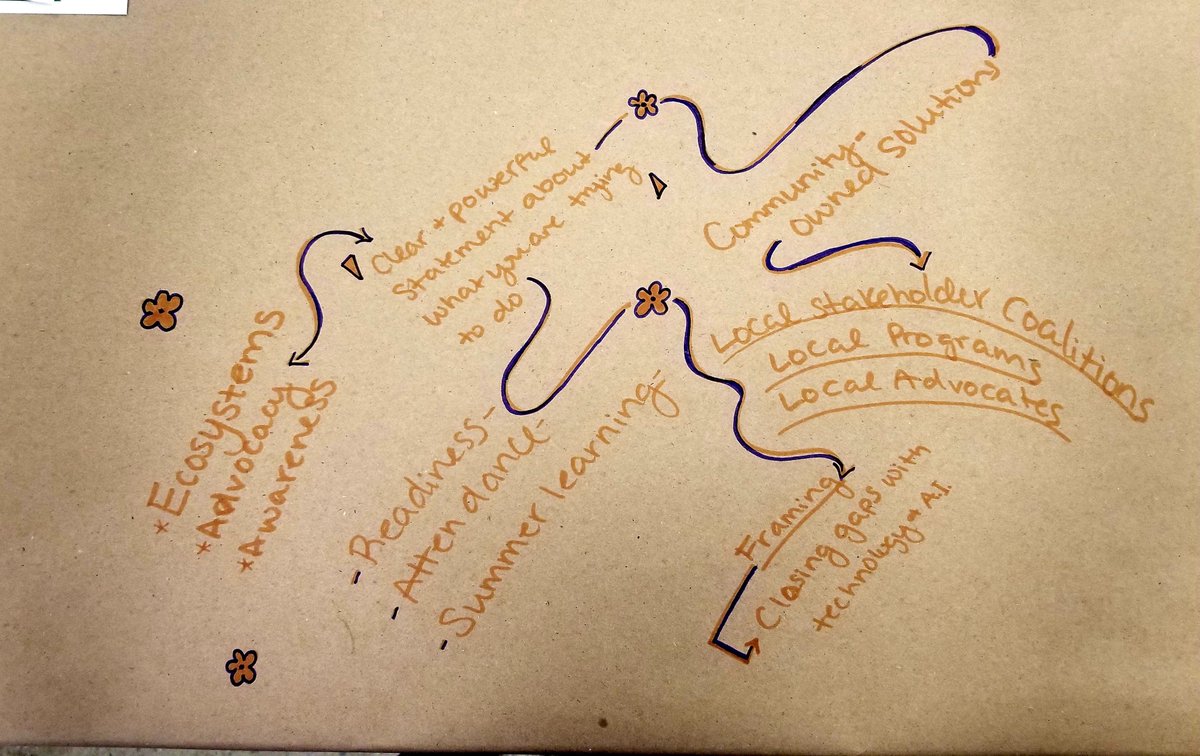 *Ecosystems
*Advocacy
*Awareness
Clear + powerful
statement about
what you are trying
to do
- Readiness-
- Attendance-
- Summer learning-
Community-
owned solutions
Local Stakeholder Coalitions
Local Programs
Local Advocates
Framing
Closing gaps with
technology + A.I.